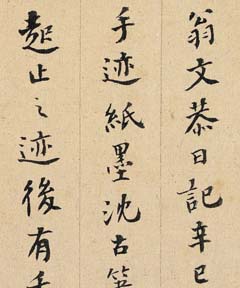 翁文恭日記辛巳
手迹紙墨沈古笠
起止之迹後有手